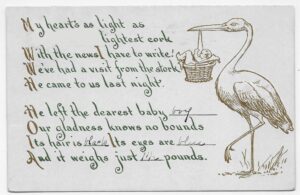 My heart's as light as
lightest cork
With the news I have to write!
We've had a visit from the stork
He came to us last night.
He left the dearest baby boy
Our gladness knows no bounds
Its hair is black Its eyes are blue
And it weighs just pounds.